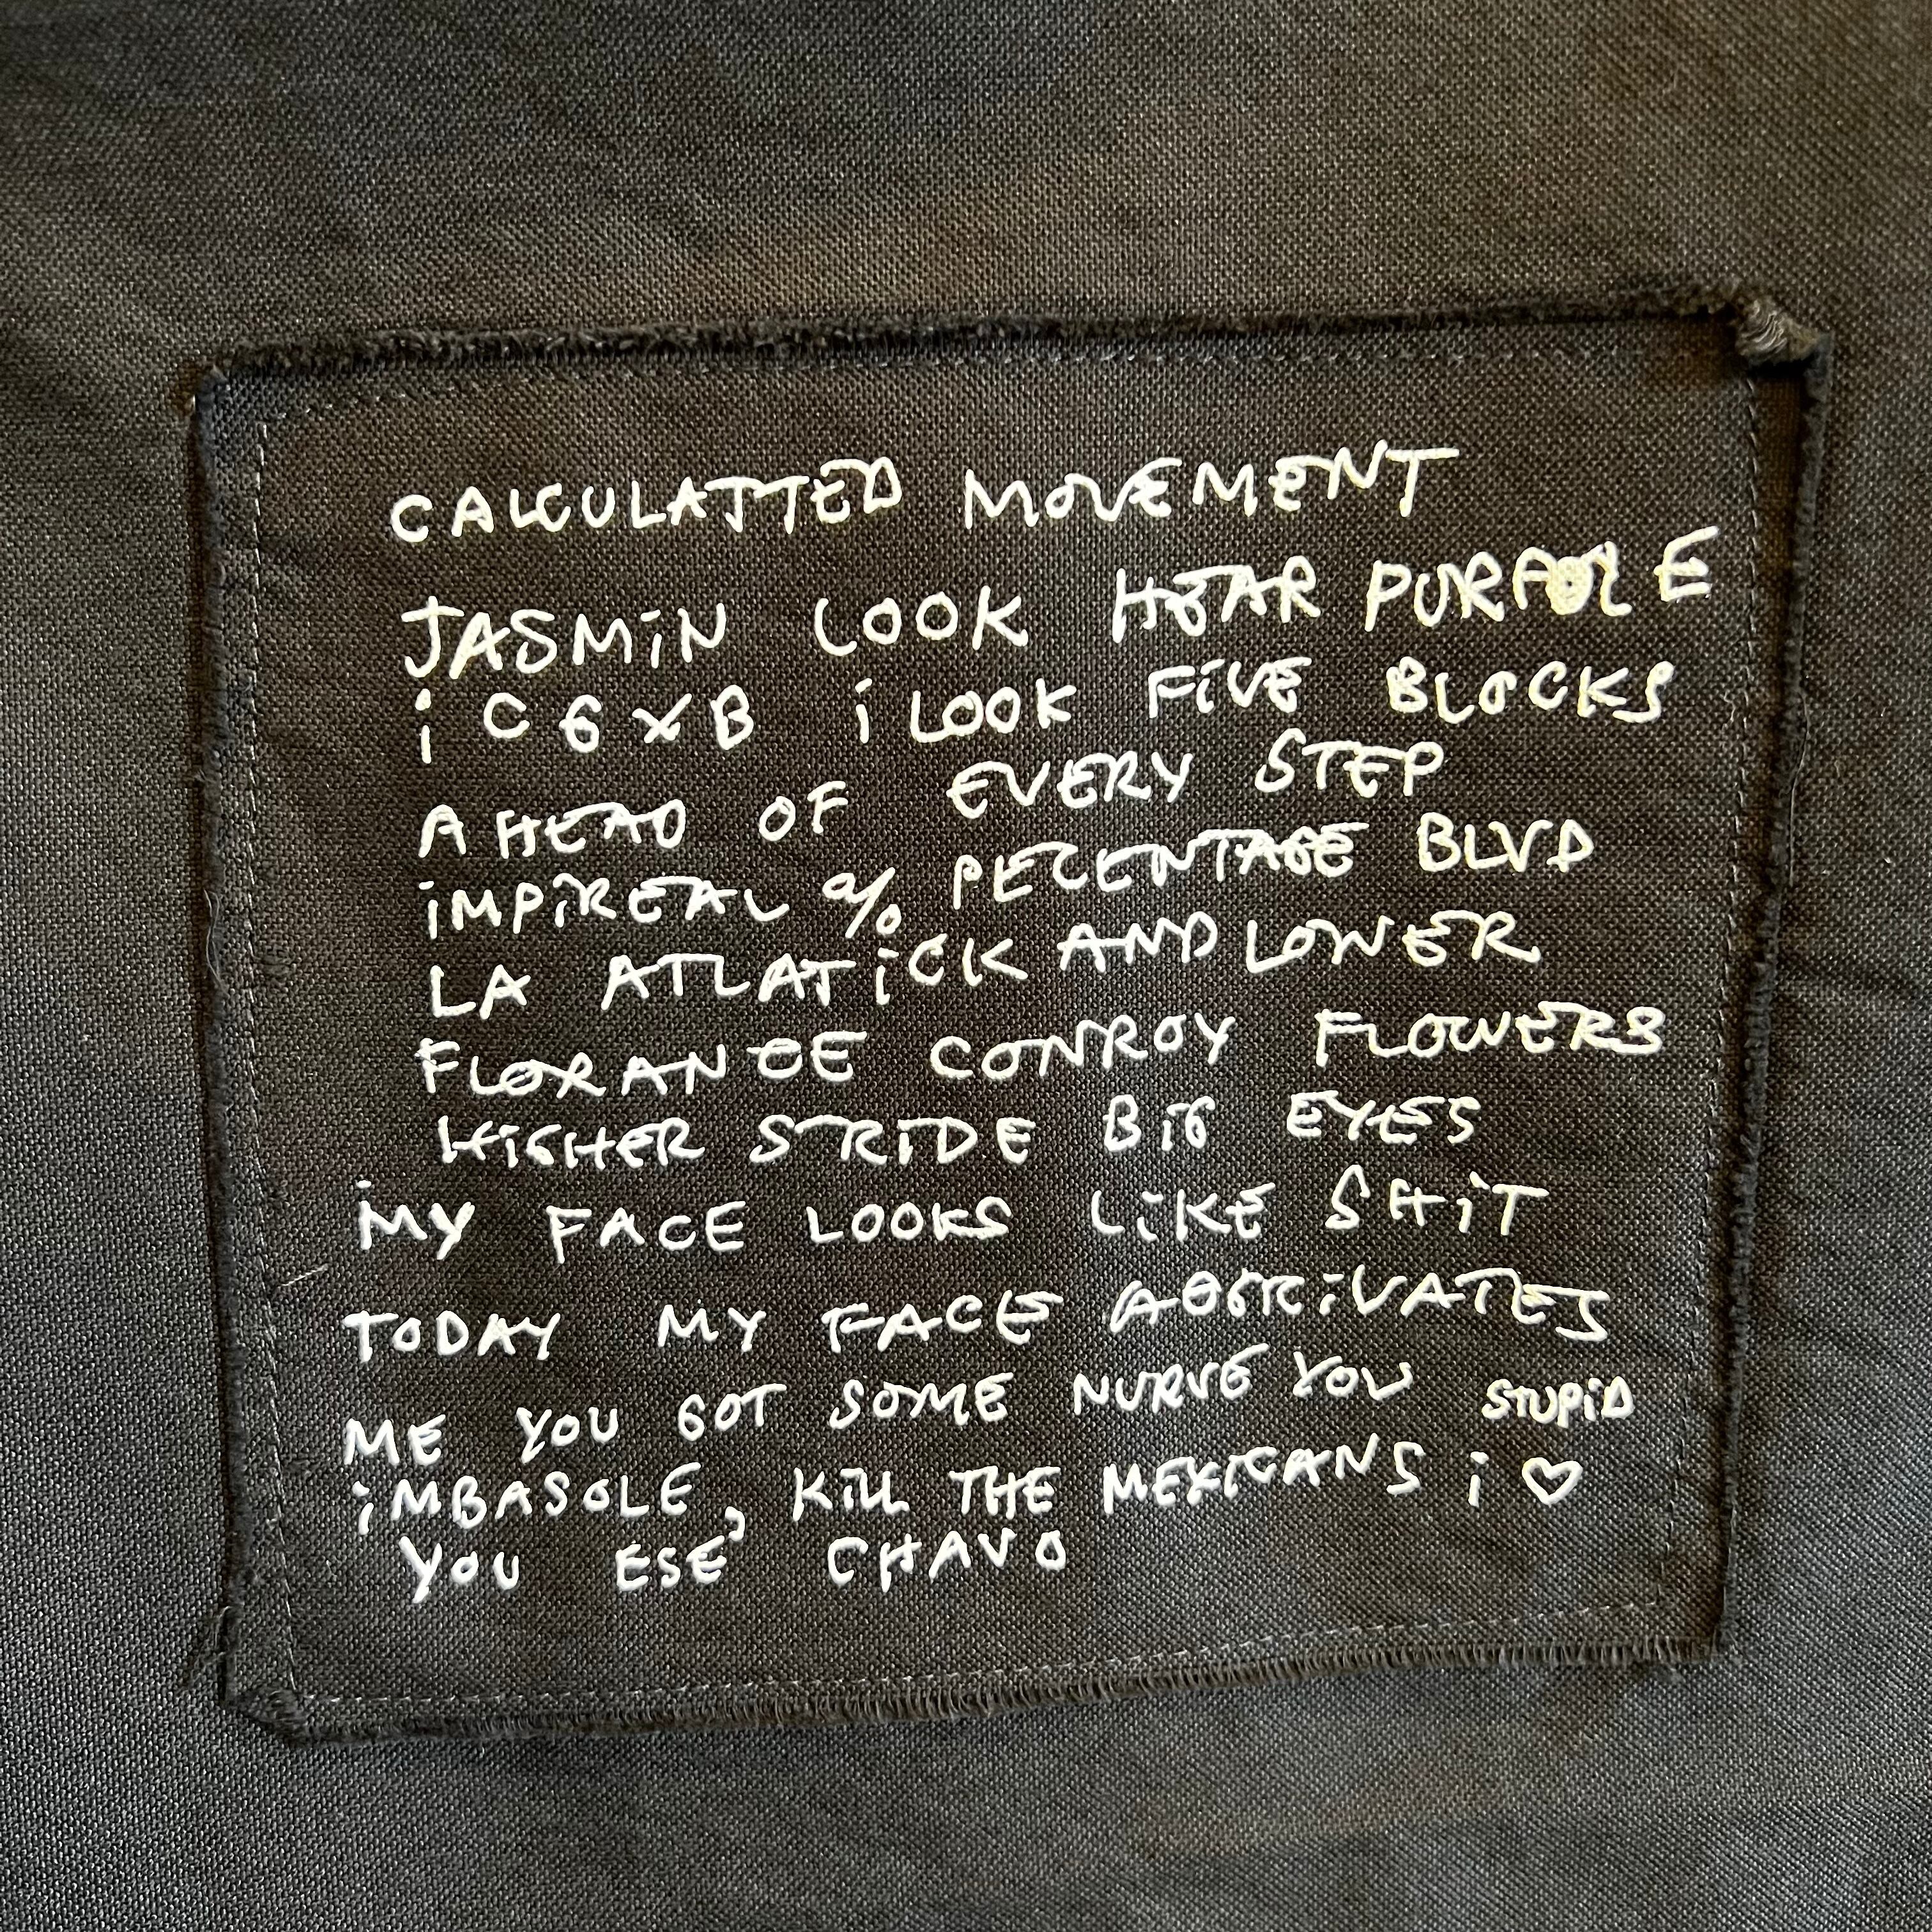 CALCULATTED MOVEMENT
JASMiN LOOK HEAR PURPOLE
i C 6 X B i LOOK FiVE BLOCKS
AHEAD OF EVERY STEP
iMPiREAL % PECENTAGE BLVD
LA ATLATiCK AND LOWER
FLORANCE CONROY FLOWERS
HiGHER STRiDE BiG EYES
MY FACE LOOKS LiKE SHiT
TODAY MY FACE
ME YOU GOT SOME NURVE YOU STUPiD
iMBASOLE, KiLL THE MEXICANS i ♡
YOU ESE CHAVO